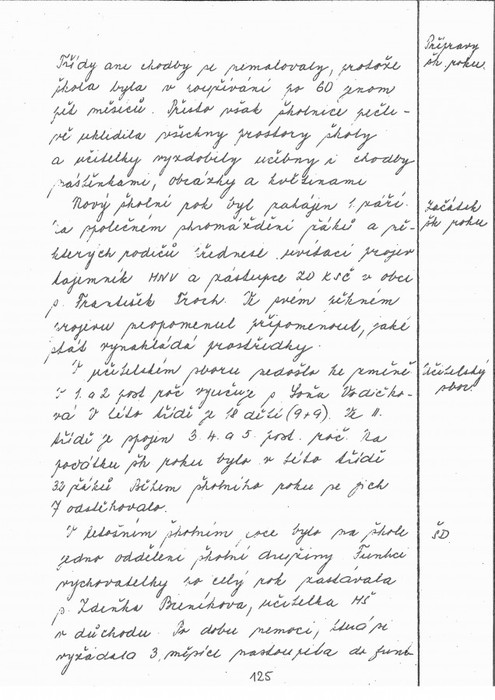 Přípravy
šk. roku
Třídy ani chodby se nemalovaly, protože
škola byla v
po 60 jenom
pět měsíců. Přesto však školnice pečli-
vě uklidila všechny prostory školy
a učitelky vyzdobily učebny i chodby
nástěnkami, obrázky a květinami
Začátek
šk roku
Nový školní rok byl zahájen 1. září.
Za společném shromáždění žáků a ně-
kterých rodičů přednesl uvítací projev
tajemník MNV a zástupce ZO KSČ v obci
p. František Troch. Ve svém pěkném
projevu neopomenul připomenout, jaké
stát vynakládá prostředky.
Učitelský
sbor
V učitelském sboru nedošlo ke změně
V 1. a 2 post roč vyučuje p. Soňa Vodičko-
vá V této třídě je 18 dětí (9+9). Ve II.
třídě je spojen 3. 4. a 5. post. roč. Na
počátku šk roku bylo v této třídě
32 žáků Během školního roku se jich
7 odstěhovalo.
ŠD
V letošním školním roce bylo na škole
jedno oddělení školní družiny. Funkci
vychovatelky po celý rok zastávala
p. Zdeňka, učitelka MŠ
v důchodu. Po dobu nemoci, která si
vyžádala 3 měsíce nastoupila do funk-
125